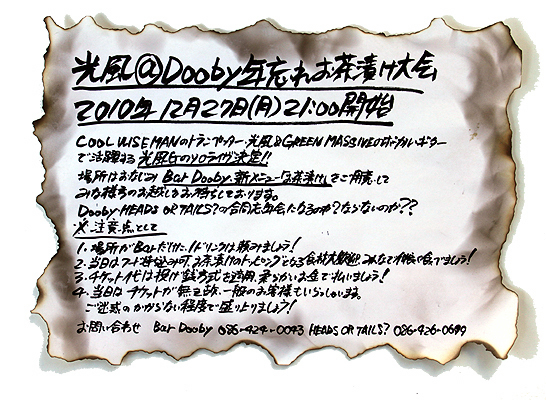 光風@Dooby年忘れお茶漬け大会
2010年 12月27日(月)21:00開始
COOL WISE MANのトランペッター光風&GREEN MASSIVEのボーカル、ギター
で活躍する光風氏のソロライヴ決定!!
場所はおなじみBar Dooby.新メニュー「お茶漬け」をご用意して
みな様のお越しをお待ちしております。
Dooby HEADS OR TAILS?の合同忘年会になるのか?ならないのか??
※注意点として
1. 場所がBarだけに、1ドリンクは頼みましょう!
2. 当日はフード持込み可。お茶漬けのトッピングとなる食材大歓迎。みんなで
3. チケット代は投げ銭方式を適用。柔らかいお金で払いましょう!
4. 当日はチケットが無い為、一般のお客様もいらっしゃいます。
ご迷惑のかからない程度で盛り上がりましょう!
お問い合わせ Bar Dooby 086-424-0043 HEADS OR TAILS? 086-426-0699